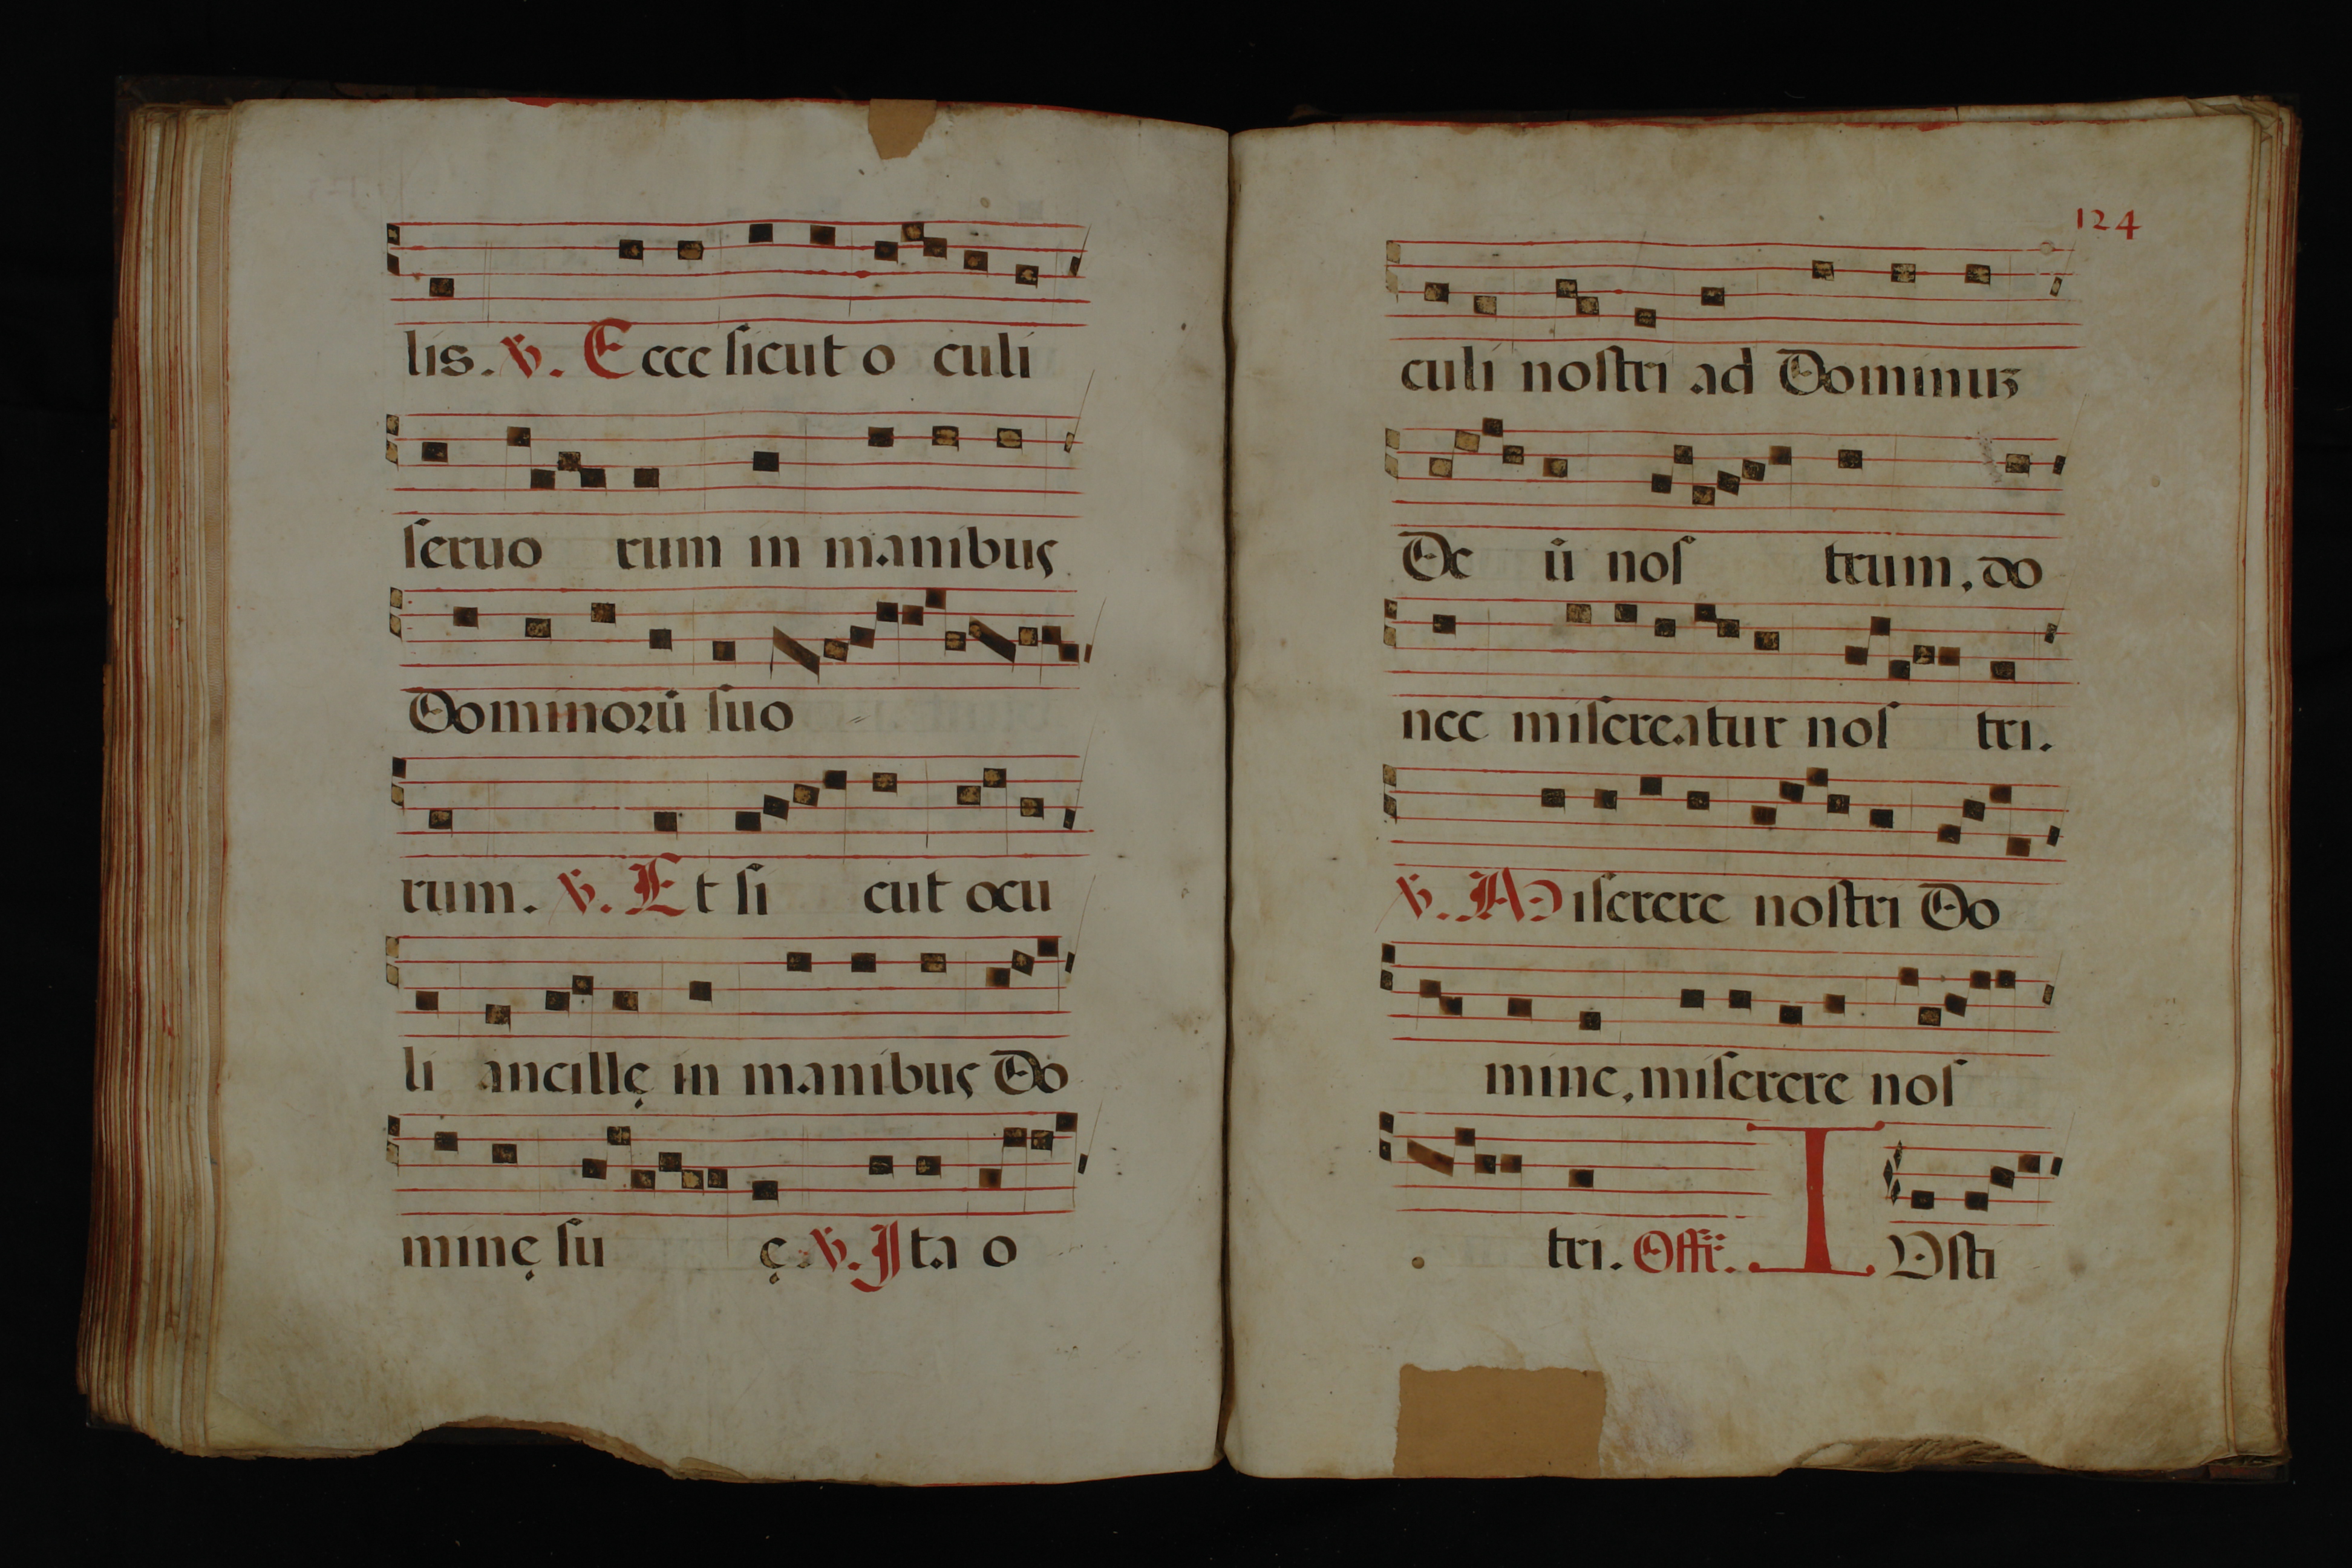 lis. ℣. Ecce sicut o culi
seruo rum in manibus
Dominorū suo
rum. ℣. Et si cut ocu
li ancillę in manibus Do
minę su ę. ℣. Ita o
124
culi nostri ad Dominuz
De ū nos trum, do
nec misereatur nos tri.
℣. Miserere nostri Do
mine, miserere nos
tri. Offr. I Usti